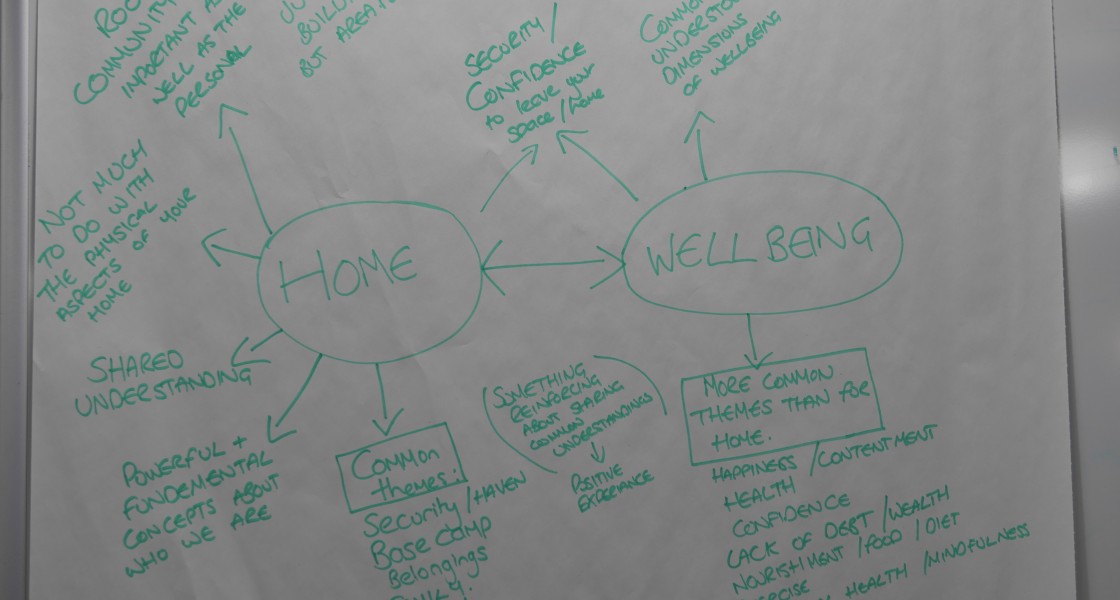 COMMUNITY
IMPORTANT
WELL AS THE
PERSONAL
BUT AREA
SECURITY /
CONFIDENCE
to leave your
space / home
UNDERSTO
DIMENSIONS
OF WELLBEING
NOT MUCH
TO DO WITH
THE PHYSICAL
ASPECTS OF YOUR
HOME
HOME
WELLBEING
SHARED
UNDERSTANDING
POWERFUL +
FUNDEMENTAL
CONCEPTS ABOUT
WHO WE ARE
Common
themes:
Security / HAVEN
Base camp
Belongings
(SOMETHING
REINFORCING
ABOUT SHARING
COMMON
UNDERSTANDINGS)
POSITIVE
EXPERIANCE
MORE COMMON
THEMES THAN FOR
HOME.
HAPPINESS / CONTENTMENT
HEALTH
CONFIDENCE
LACK OF DEBT / WEALTH
NOURISHMENT / FOOD / DIET
HEALTH / MINDFULNESS